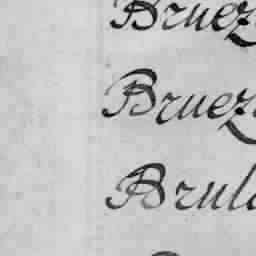 Bruez
Bruez
Brul